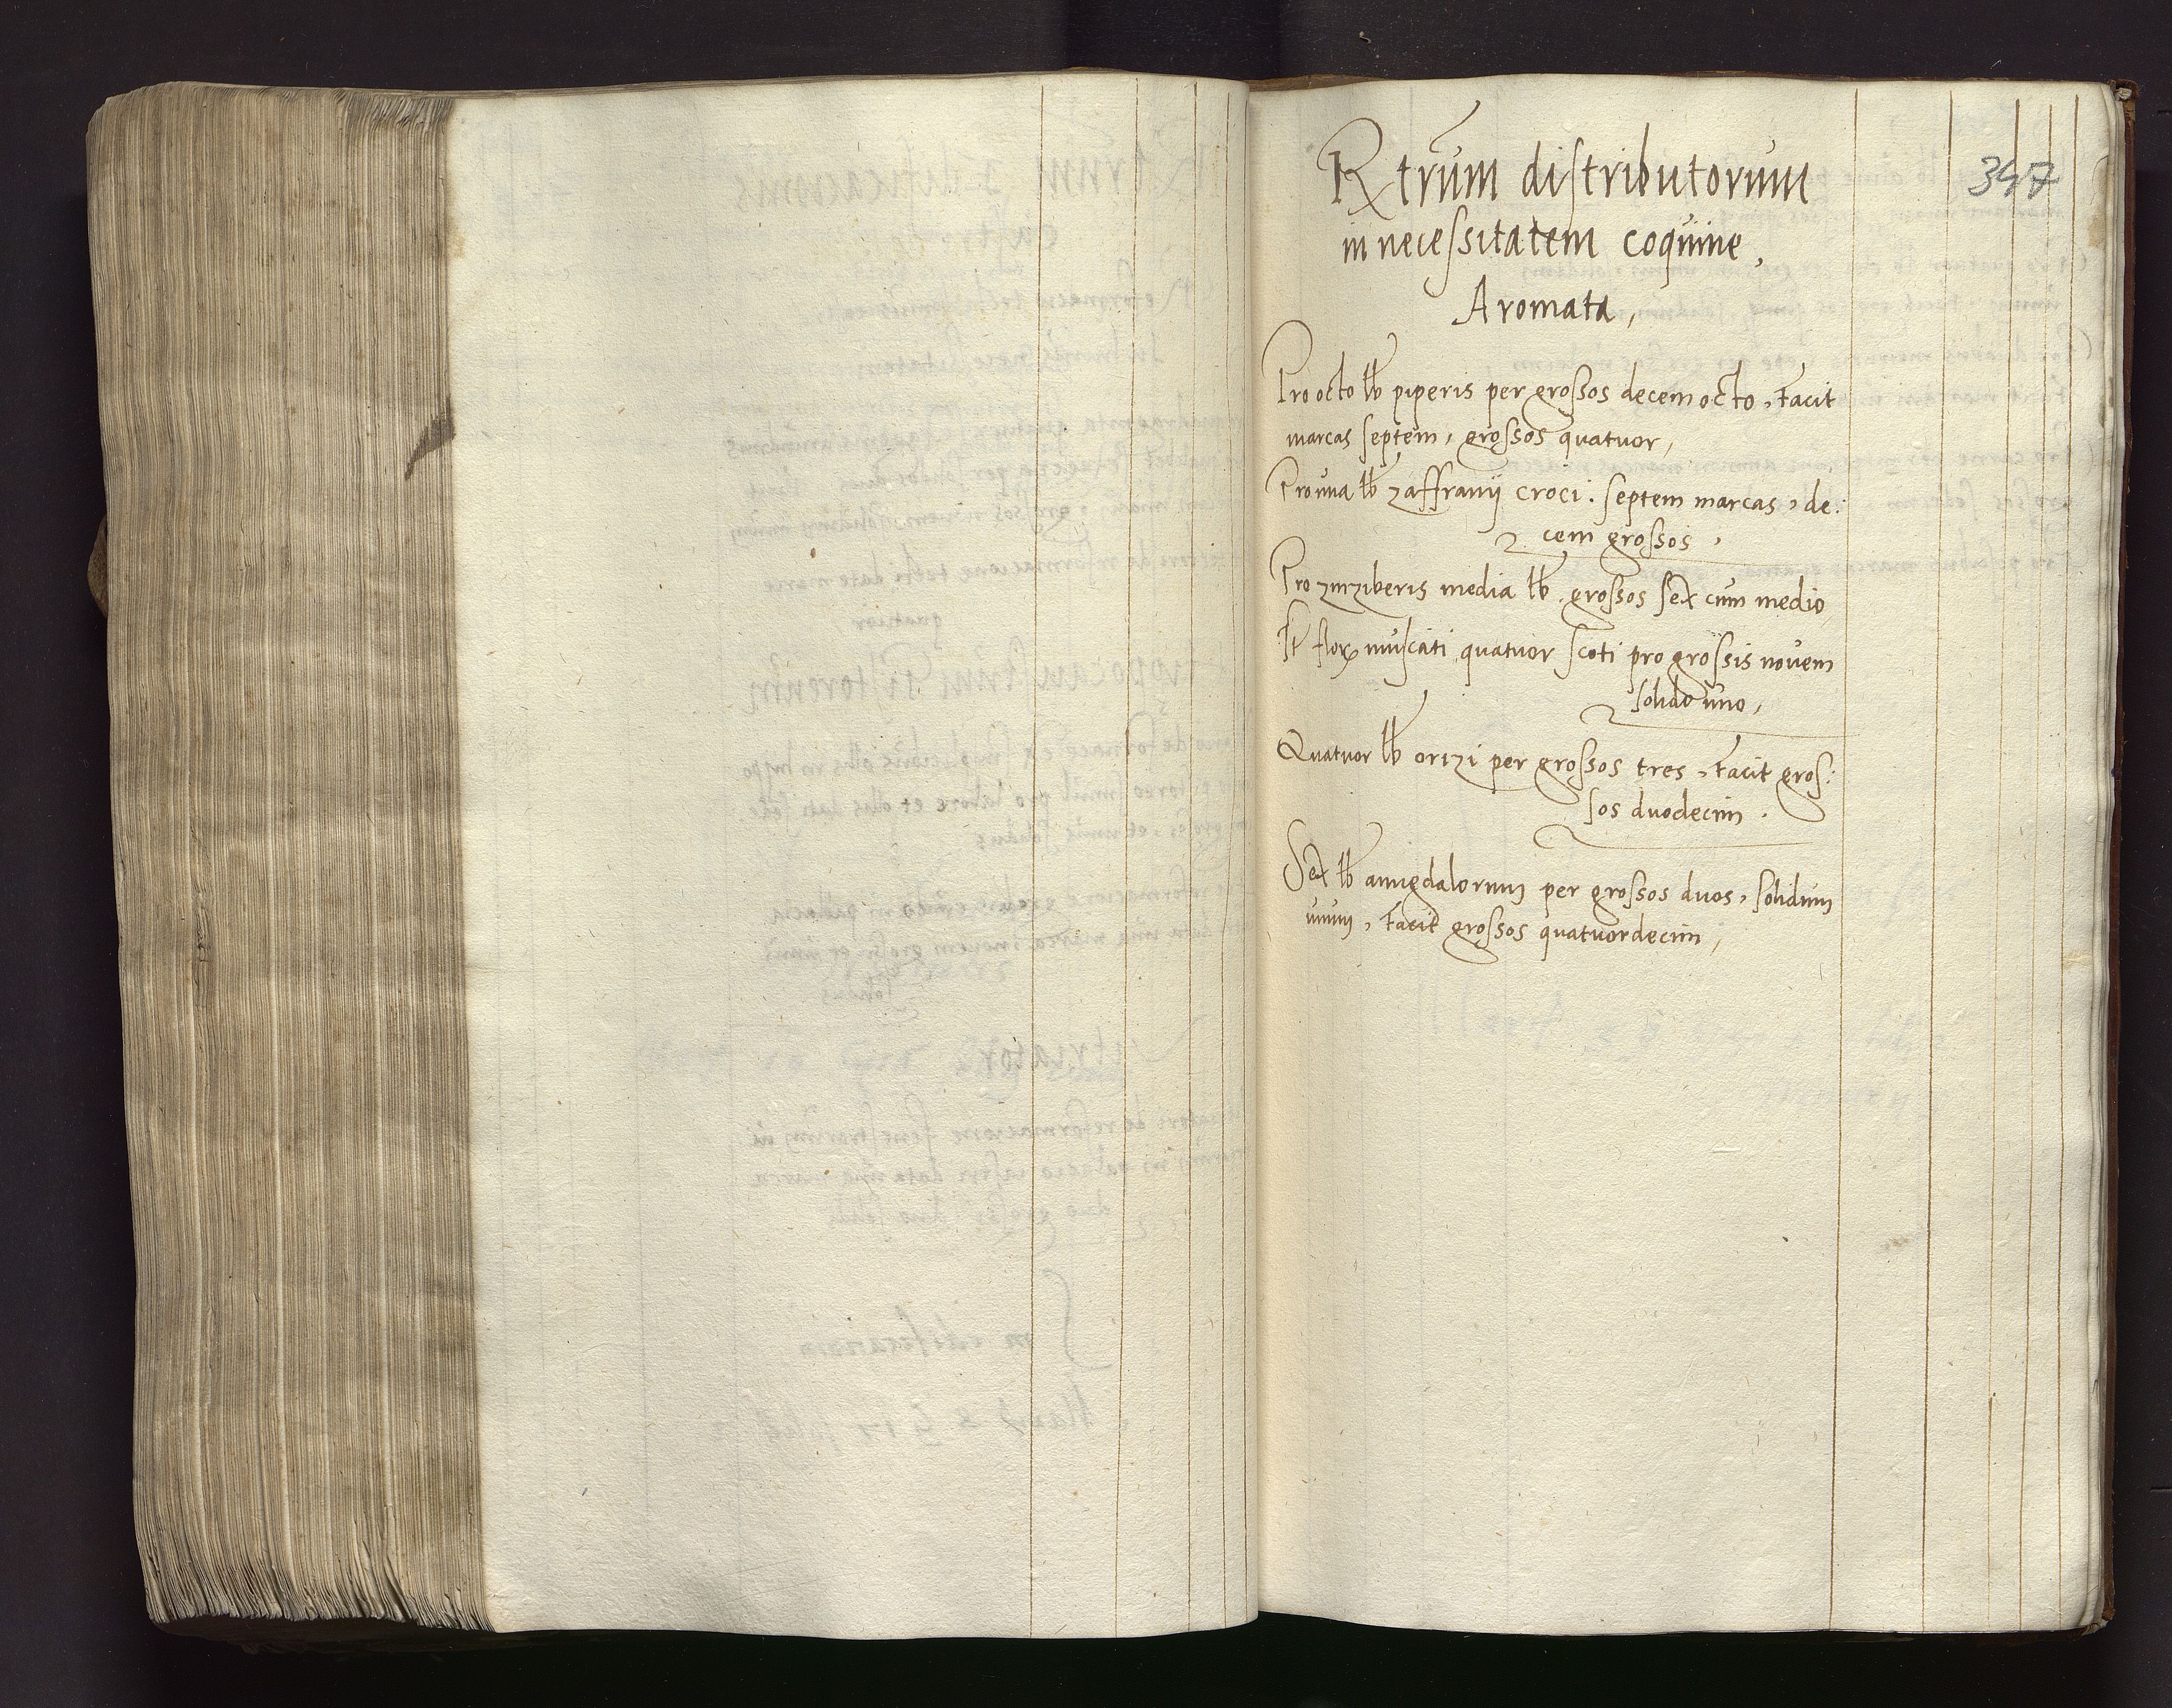 347
Rtrum distributorum
in necessitatem coquine,
Aromata,
Pro octo lb piperis per grossos decem octo, facit
marcas septem, grossos quatuor,
Pro una lb zaffranij croci: septem marcas, de:
cem grossos,
Pro zinziberis media lb. grossos sex cum medio
It flor muscati quatuor scoti pro grossis novem
solido uno,
Quatuor lb orizi per grossos tres, facit gros:
sos duodecim.
Sex lb amigdalorum per grossos duos, solidum
unum, facit grossos quatuordecim,